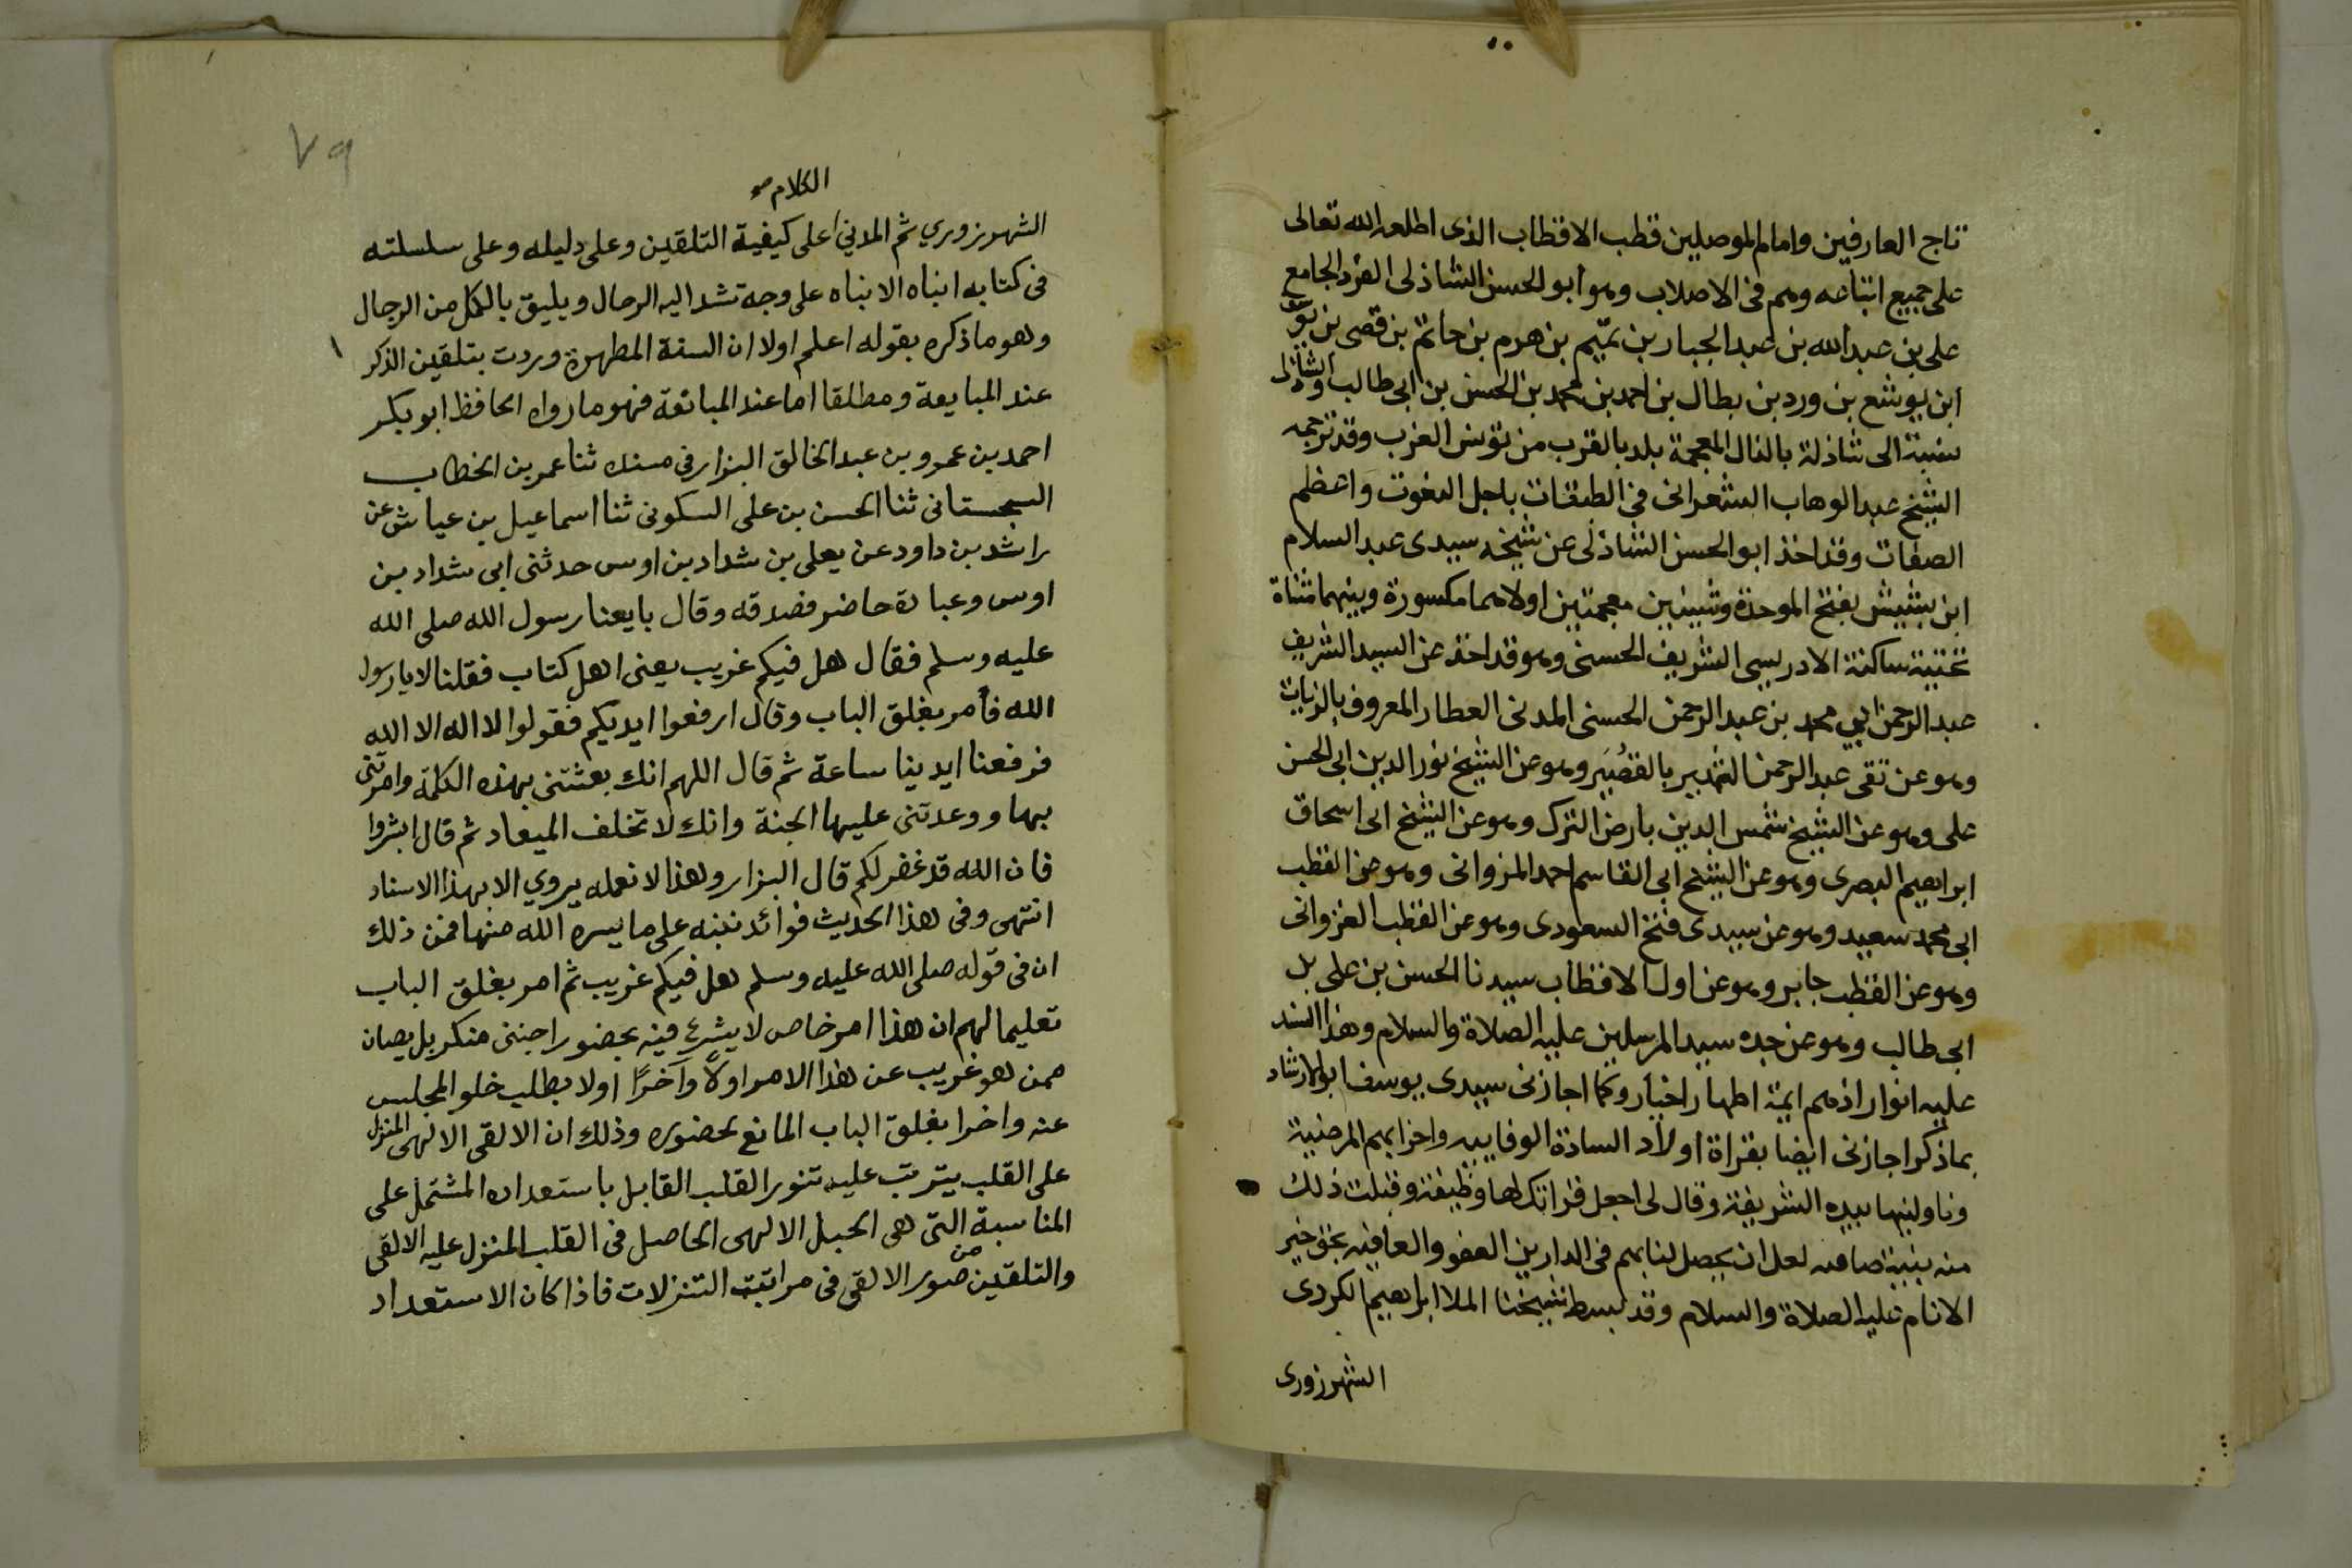 تاج العارفين وامام الموصلين قطب الاقطاب الذى اطلعه الله تعالى
على جميع اتباعه وهم فى الاصلاب وهو أبو الحسن الشاذلى الفرد الجامع
على بن عبد الله بن عبد الجبار بن تميم بن هرم بن حاتم بن قصى بن يوسف
ابن يوشع بن ورد بن بطال بن احمد بن محمد بن الحسن بن ابى طالب والشاذلى
نسبة الى شاذلة بالذال المعجمة بلد بالقرب من تونس الغرب وقد ترجمه
الشيخ عبد الوهاب الشعرانى فى الطبقات باجل النعوت واعظم
الصفات وقد اخذ ابو الحسن الشاذلى عن شيخه سيدى عبد السلام
ابن بشيش بفتح الموحدة وشينين معجمتين اولاهما مكسورة وبينهما مثناة
تحتية ساكنة الادريسى الشريف الحسنى وهو قد اخذ عن السيد الشريف
عبد الرحمن ابي محمد بن عبد الرحمن الحسنى المدنى العطار المعروف بالزيات
وهو عن تقى عبد الرحمن الشهير بالفقير وهو عن الشيخ نور الدين ابى الحسن
على وهو عن الشيخ شمس الدين بارض الترك وهو عن الشيخ ابى اسحاق
ابراهيم البصرى وهو عن الشيخ ابى القاسم احمد المزوانى وهو عن القطب
ابى محمد سعيد وهو عن سيدى فتح السعودى وهو عن القطب الغزوانى
وهو عن القطب جابر وهو عن اول الاقطاب سيدنا الحسن بن على بل
ابى طالب وهو عن جده سيد المرسلين عليه الصلاة والسلام وهذا السند
عليه انوار اذ هم ايمة اطهار اخيار وكما اجازنى سيدى يوسف ابو الارشاد
بما ذكر اجازنى ايضا بقراة اولاد السادة الوفاييه واحزابهم المرضية
وناولنيها بيده الشريفة وقال لى اجعل قراتك لها وظيفة وقبلت ذلك
منه بنية صافيه لعل ان يحصل لنا بهم فى الدارين العفو والعافيه بحق خير
الانام عليه الصلاة والسلام وقد بسط شيخنا الملا ابراهيم الكردى
الشهرزورى
٧٩
الكلام صح
الشهرزوري ثم المدني على كيفية التلقين وعلى دليله وعلى سلسلته
فى كتابه انباه الانباه على وجه تشد اليه الرحال ويليق بالكمل من الرجال
وهو ما ذكره بقوله اعلم اولا ان السنة المطهرة وردت بتلقين الذكر
عند المبايعة ومطلقا اما عند المبائعة فهو ما رواه الحافظ ابو بكر
احمد بن عمرو بن عبد الخالق البزار فى مسنده ثنا عمر بن الخطاب
السجستانى ثنا الحسن بن على السكونى ثنا اسماعيل بن عياش عن
راشد بن داود عن يعلى بن شداد بن اوس حدثنى ابى شداد بن
اوس وعبادة حاضر فصدقه وقال بايعنا رسول الله صلى الله
عليه وسلم فقال هل فيكم غريب يعنى اهل كتاب فقلنا لا يا رسول
الله فأمر بغلق الباب وقال ارفعوا ايديكم فقولوا لا اله الا الله
فرفعنا ايدينا ساعة ثم قال اللهم انك بعثتنى بهذه الكلمة وامرتنى
بها ووعدتنى عليها الجنة وانك لا تخلف الميعاد ثم قال ابشروا
فان الله قد غفر لكم قال البزار وهذا لا نعمله يروي الا بهذا الاسناد
انتهى وفى هذا الحديث فوائد ننبه على ما يسره الله منها فمن ذلك
ان فى قوله صلى الله عليه وسلم هل فيكم غريب ثم امر بغلق الباب
تعليما لهم ان هذا امر خاص لا يشرع فيه بحضور اجنبى منكر بل يصان
ممن هو غريب عن هذا الامر اولاً وآخرًا اولا بطلب خلو المجلس
عنه واخرا بغلق الباب المانع لحضوره وذلك ان الالقى الالهى المنزل
على القلب يترتب عليه تنور القلب القابل باستعداده المشتمل على
المناسبة التى هى الحبل الالهى الحاصل فى القلب المنزل عليه الالقى
والتلقين من صور الالقى فى مراتبت التنزلات فاذا كان الاستعداد